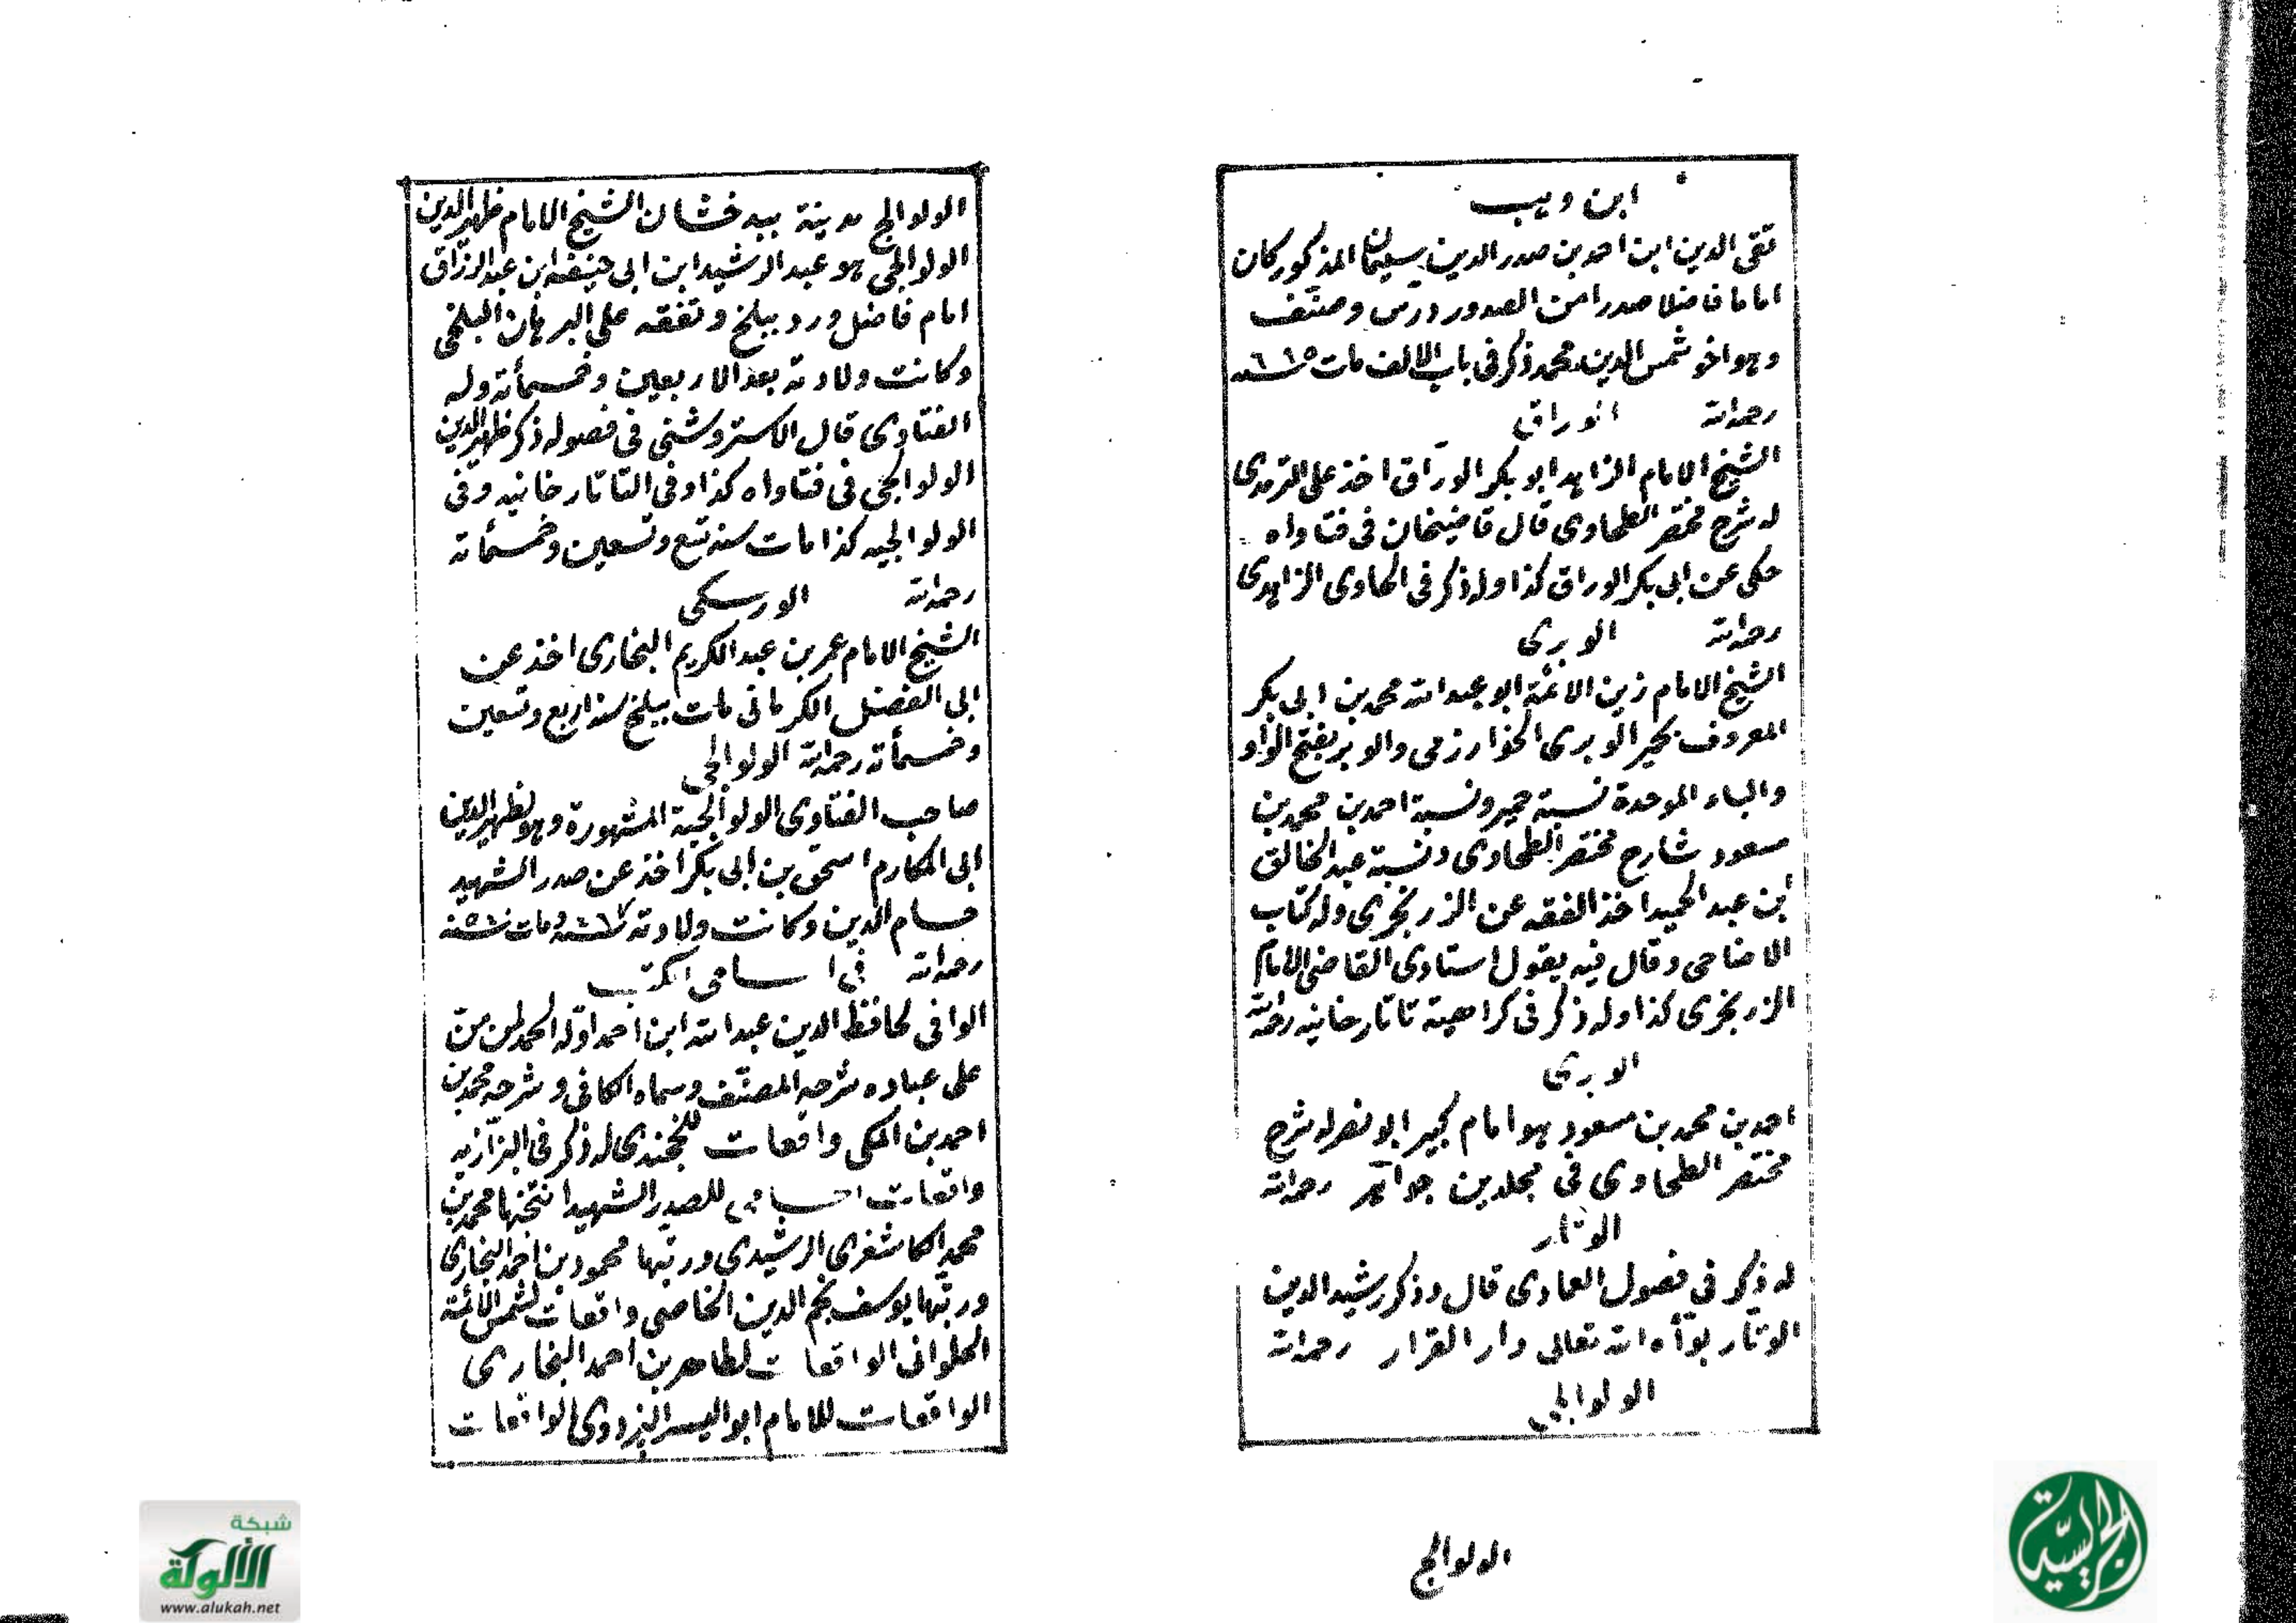 ابن وهيب
تقى الدين ابن احمد بن صدر الدين سليمان المذكور كان
اماما فاضلا صدرا من الصدور درس وصنّف
وهو اخو شمس الدين محمد ذكر فى باب الالف مات ٦١٥ سنه
رحمه الله الوراق
الشيخ الامام الزاهد ابو بكر الورّاق اخذ على الترمدى
له شرح مختصر الطحاوى قال قاضيخان فى فتاواه
حكى عن ابى بكر الوراق كذا وله ذكر فى الحاوى الزاهدى
رحمه الله الوبرى
الشيخ الامام زين الائمّة ابو عبد الله محمد بن ابى بكر
المعروف بخمير الوبرى الخوارزمى والوبر بفتح الواو
والباء الموحدة نسبة خمير ونسبة احمد بن محمد بن
مسعود شارح مختصر الطحاوى ونسبة عبد الخالق
ابن عبد الحميد اخذ الفقه عن الزرنجرى وله كتاب
الاضاحى وقال فيه يقول استاذى القاضى الامام
الزرنجرى كذا وله ذكر فى كراهية تاتارخانيه رحمه الله
الوبرى
احمد بن محمد بن مسعود هو امام كبير ابو نصر له شرح
مختصر الطحاوى فى مجلدين رحمه الله
الوتار
له ذكر فى فصول العمادى قال وذكر رشيد الدين
الوتّار بوّأه الله تعالى دار القرار رحمه الله
الولوالجى
الولوالج
الولوالج مدينة ببدخشان الشيخ الامام ظهير الدين
الولوالجى هو عبد الرشيد ابن ابى حنيفه ابن عبد الرزّاق
امام فاضل ورد ببلخ وتفقه على البرهان البلخى
وكانت ولادته بعد الاربعين وخمسمأته وله
الفتاوى قال الاستروشنى فى فصوله ذكر ظهير الدين
الولوالجى فى فتاواه كذا وفى التاتارخانيه وفى
الولوالجيه كذا مات سنه تسع وتسعين وخمسمأته
رحمه الله الورسكى
الشيخ الامام عمر بن عبد الكريم البخارى اخذ عن
ابى الفضل الكرمانى مات ببلخ سنه اربع وتسعين
وخمسمأته رحمه الله الولوالجى
صاحب الفتاوى الولوالجية المشهورة وهو لظهير الدين
ابى المكارم اسحق بن ابى بكر اخذ عن صدر الشهيد
حسام الدين وكانت ولادته
رحمه الله فى اسامى الكتب
الوافى لحافظ الدين عبد الله ابن احمد اوّله الحمد لمن منّ
على عباده شرحه المصنّف وسماه الكافى وشرحه محمد بن
احمد بن المكى واقعات للخجندى له ذكر فى البزّازيه
واقعات احسامى للصدر الشهيد انتخبها محمد بن
محمد الكاشغرى الرشيدى ورتبها محمود بن احمد البخارى
ورتّبها يوسف نجم الدين الخاصى واقعات لشمس الائمّة
الحلوانى الواقعات لطاهر بن احمد البخارى
الواقعات للامام ابو اليسر البزدوى الواقعات
شبكة
الألوكة
www.alukah.net